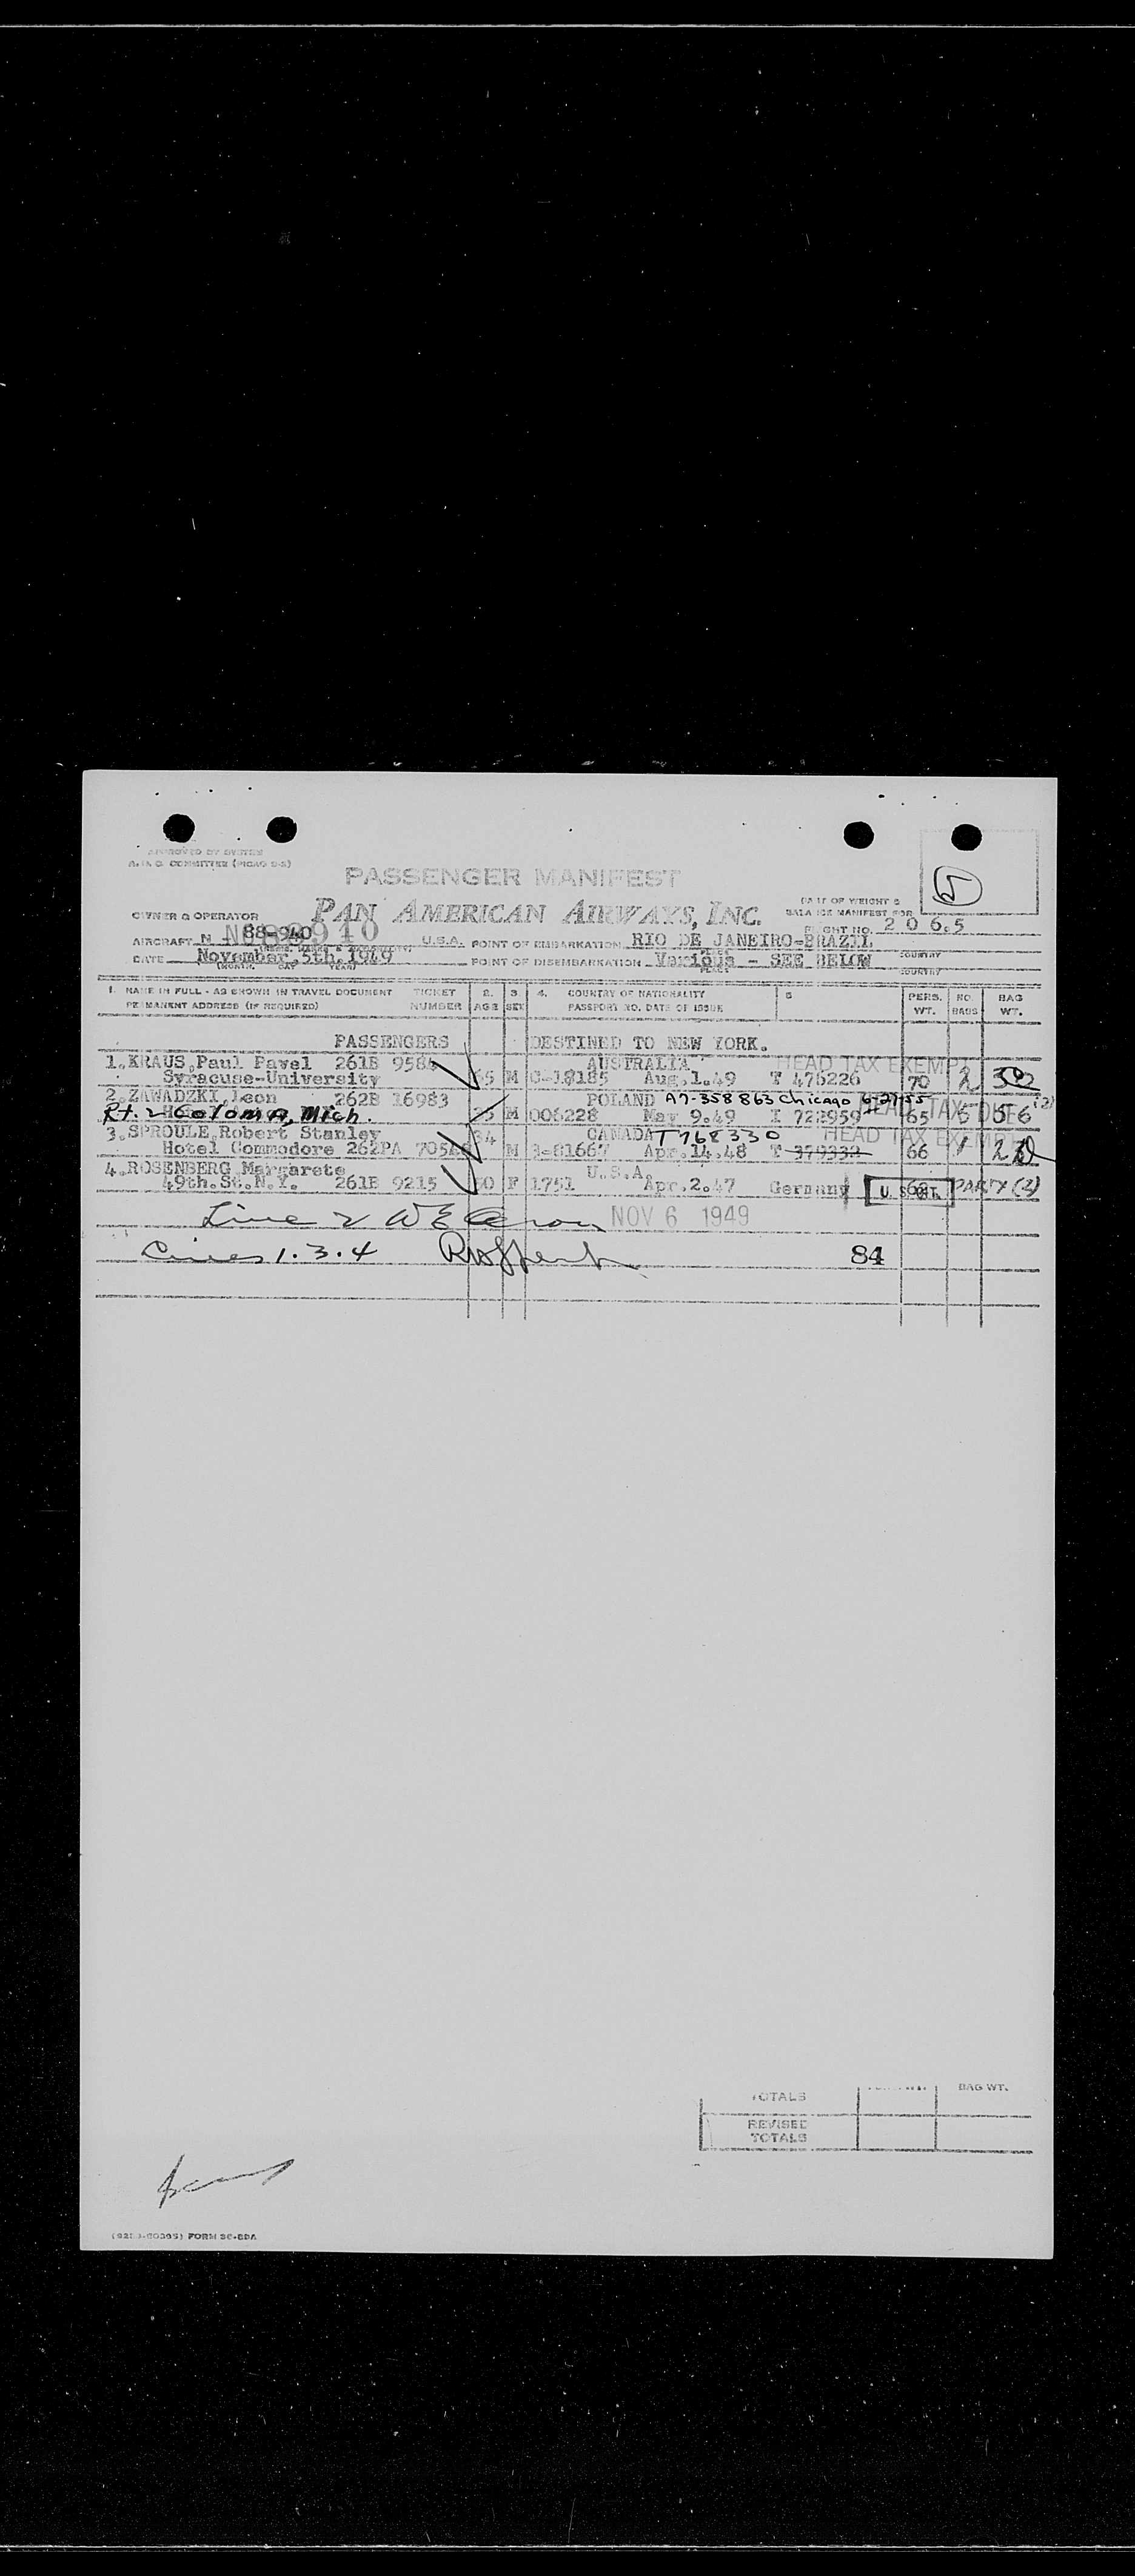 APPROVED BY SYSTEM
COMMITTEE
PASSENGER MANIFEST
5
PART OF WEIGHT &
BALANCE MANIFEST FOR
OWNER & OPERATOR PAN AMERICAN AIRWAYS, INC.
FLIGHT NO. 2 0 6.5
AIRCRAFT N 88-940 U.S.A. POINT OF EMBARKATION RIO DE JANEIRO-BRAZIL
COUNTRY
DATE November 5th.1949 POINT OF DISEMBARKATION Various - SEE BELOW
(MONTH, DAY YEAR) PLACE COUNTRY
1. NAME IN FULL - AS SHOWN IN TRAVEL DOCUMENT TICKET 2. 3 4. COUNTRY OF NATIONALITY 5 PERS. NO. BAG
PERMANENT ADDRESS (IF REQUIRED) NUMBER AGE SEX PASSPORT NO. DATE OF ISSUE WT. BAGS WT.
PASSENGERS DESTINED TO NEW YORK.
1.KRAUS,Paul Pavel 261B AUSTRALIA HEAD TAX EXEMPT
Syracuse-University M Aug.1.49 T 476226 70 2
2.ZAWADZKI,Leon 262B 16983 POLAND A7-358863 Chicago
Rt. 2 Coloma, Mich. M 006228 May 9.49 I 722959 HEAD TAX 65 56
3.SPROULE,Robert Stanley 34 CANADA T768330 HEAD TAX EXEMPT
Hotel Commodore 262PA M 81667 Apr.14.48 T 379332 66 1
4.ROSENBERG Margarete U.S.A.
49th.St.N.Y. 261B 9215 F 1751 Apr.2.47 Germany U.S. CIT. PARTY (2)
Line 2 W E NOV 6 1949
Lines 1.3.4 84
TOTALS BAG WT.
REVISED
TOTALS
FORM